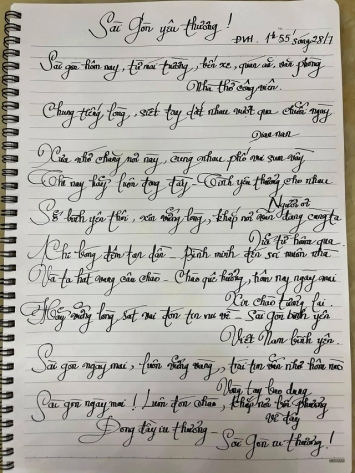 Sài Gòn yêu thương !
ĐVH. 1h55 sáng 28/7
Sài gòn hôm nay, từ mái trường, bến xe, quán xá, văn phòng
Nhà thờ công viên.
Chung tiếng lòng, siết tay dắt nhau vượt qua chuỗi ngày
Gian nan
Xưa nhớ chăng nơi này, cùng nhau phố vui sum vầy
Thì nay hãy luôn đong đầy - Tình yêu thương cho nhau
Người ơi
Sẽ bình yên thôi, xin vững lòng, khắp nơi vẫn đang cùng ta
Dẫu từ hôm qua
Khi bóng đêm tan dần - Bình minh đến soi muôn nhà
Và ta hát vang câu chào - Chào quê hương, hôm nay ngày mai
Xin chào tương lai.
Hãy vững lòng sát vai đón tin vui về - Sài gòn bình yên
Việt Nam bình yên.
Sài gòn ngày mai, luôn vững vàng, trái tim vẫn như hôm nào
Vòng tay bao dung
Sài gòn ngày mai ! Luôn đón chào, khắp nơi bốn phương
về đây
Đong đầy yêu thương -
Sài Gòn yêu thương !